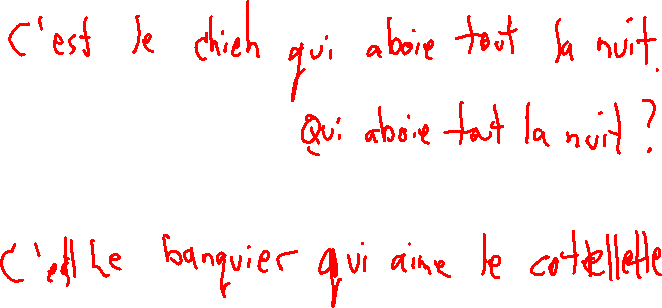 C'est le chien qui aboie tout la nuit.
Qui aboie tout la nuit ?
C'est le banquier qui aime le cotellette